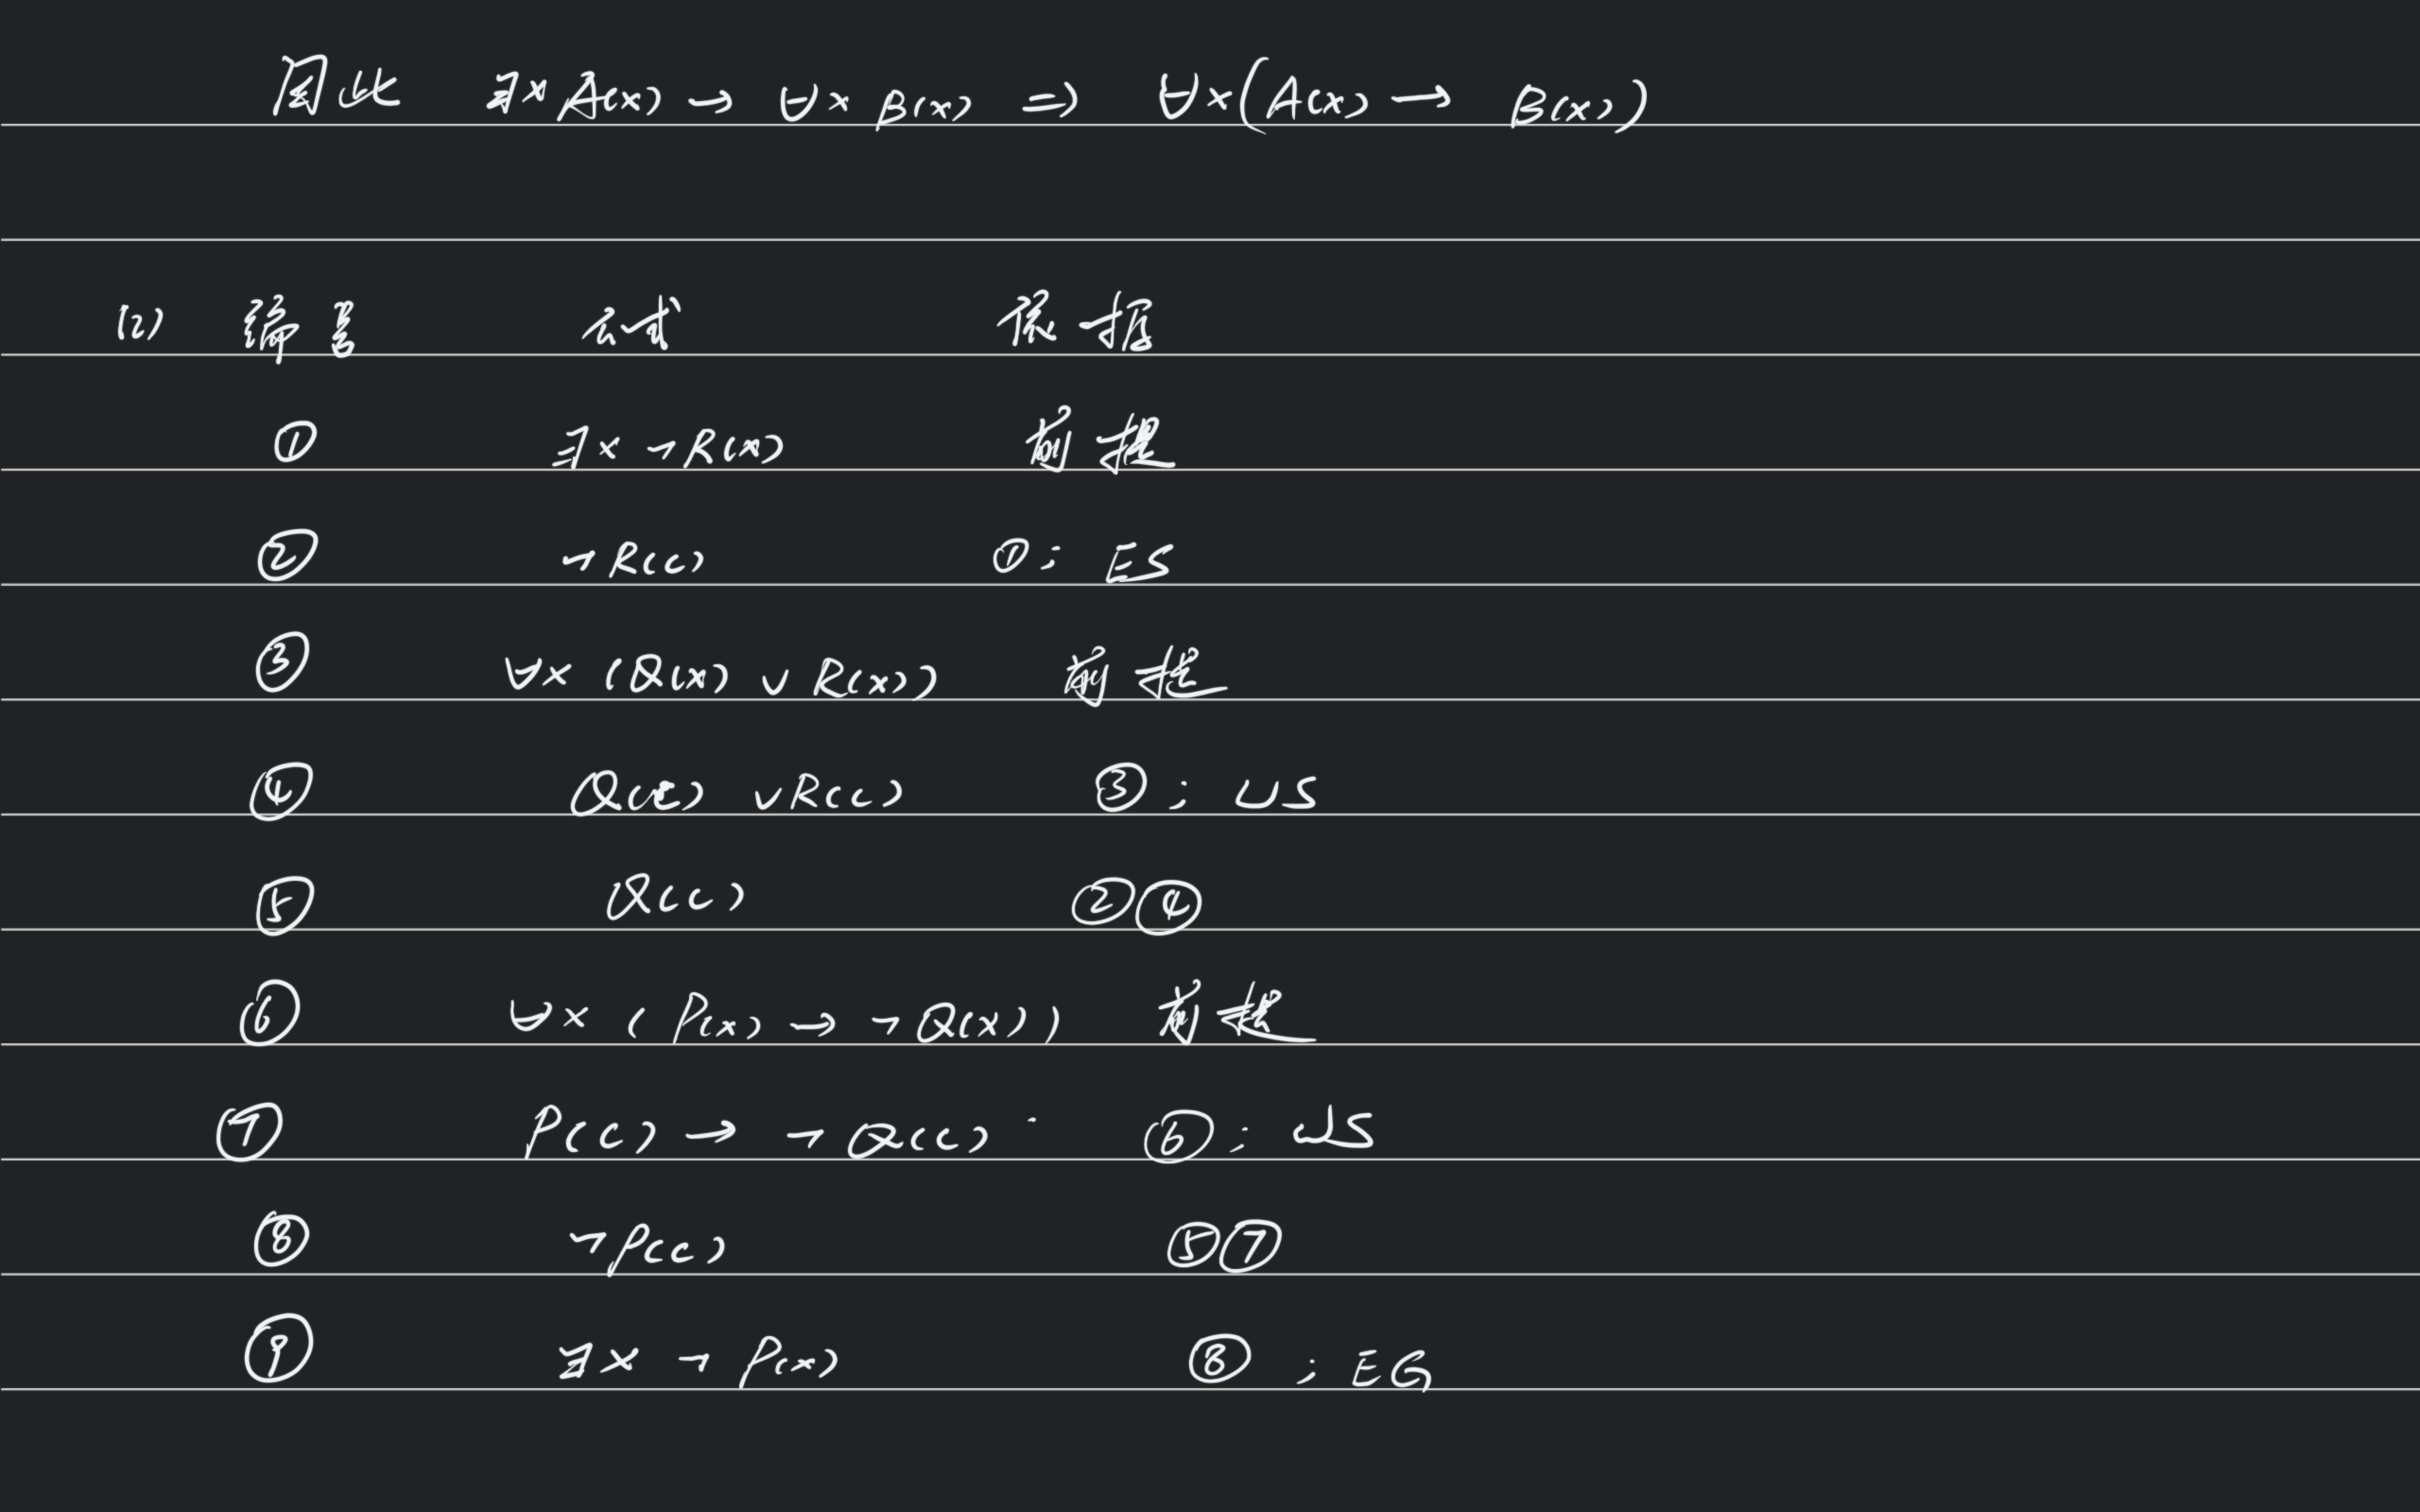 因此 ∃x A(x) → ∀x B(x) ⇒ ∀x(A(x) → B(x))
(2) 编号 公式 依据
① ∃x ¬R(x) 前提
② ¬R(c) ①; ES
③ ∀x (Q(x) ∨ R(x)) 前提
④ Q(c) ∨ R(c) ③; US
⑤ Q(c) ②④
⑥ ∀x (P(x) → ¬Q(x)) 前提
⑦ P(c) → ¬Q(c) ⑥; US
⑧ ¬P(c) ⑤⑦
⑨ ∃x ¬P(x) ⑧; EG